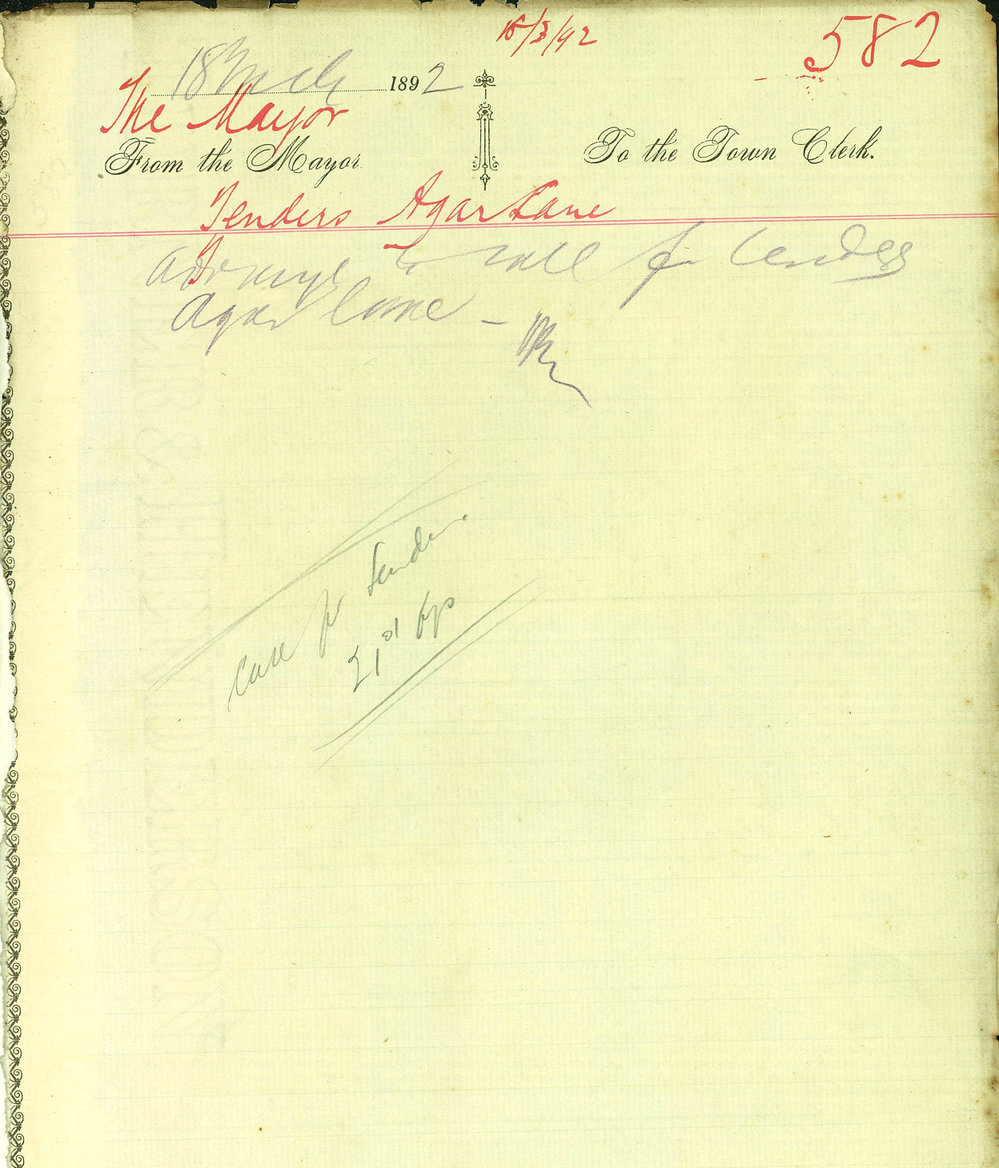 18/3/92
582
18 Mch 1892
The Mayor
From the Mayor
To the Town Clerk.
Tenders Agar Lane
Arrange to call for tenders
Agar Lane —
Call for Tenders
21st